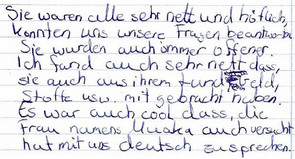 Sie waren alle sehr nett und höflich,
konnten uns unsere Fragen beantworten.
Sie wurden auch immer offener.
Ich fand auch sehr nett dass,
sie auch aus ihrem Geld,
Stoffe usw. mit gebracht haben.
Es war auch cool dass, die
Frau namens auch versucht
hat mit uns deutsch zu sprechen.